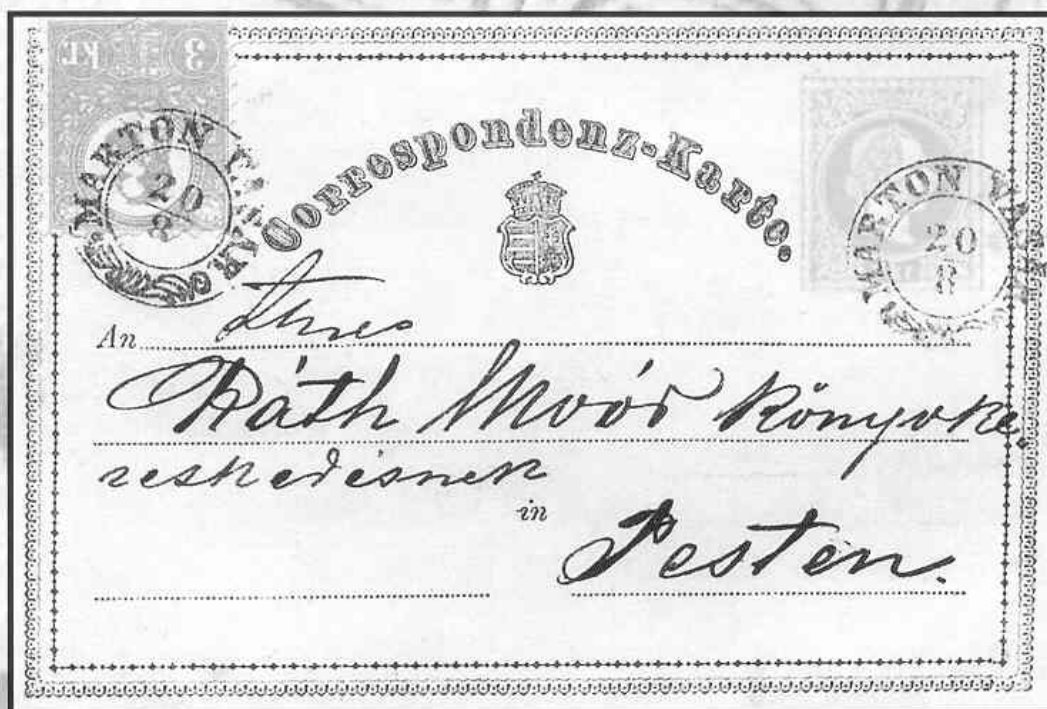 3 kr.
MARTON VÁSÁR
20
8
Correspondenz-Karte.
MARTON VÁSÁR
20
8
An
Ráth Moór Könyvke
reskedésnek
in
Pesten.